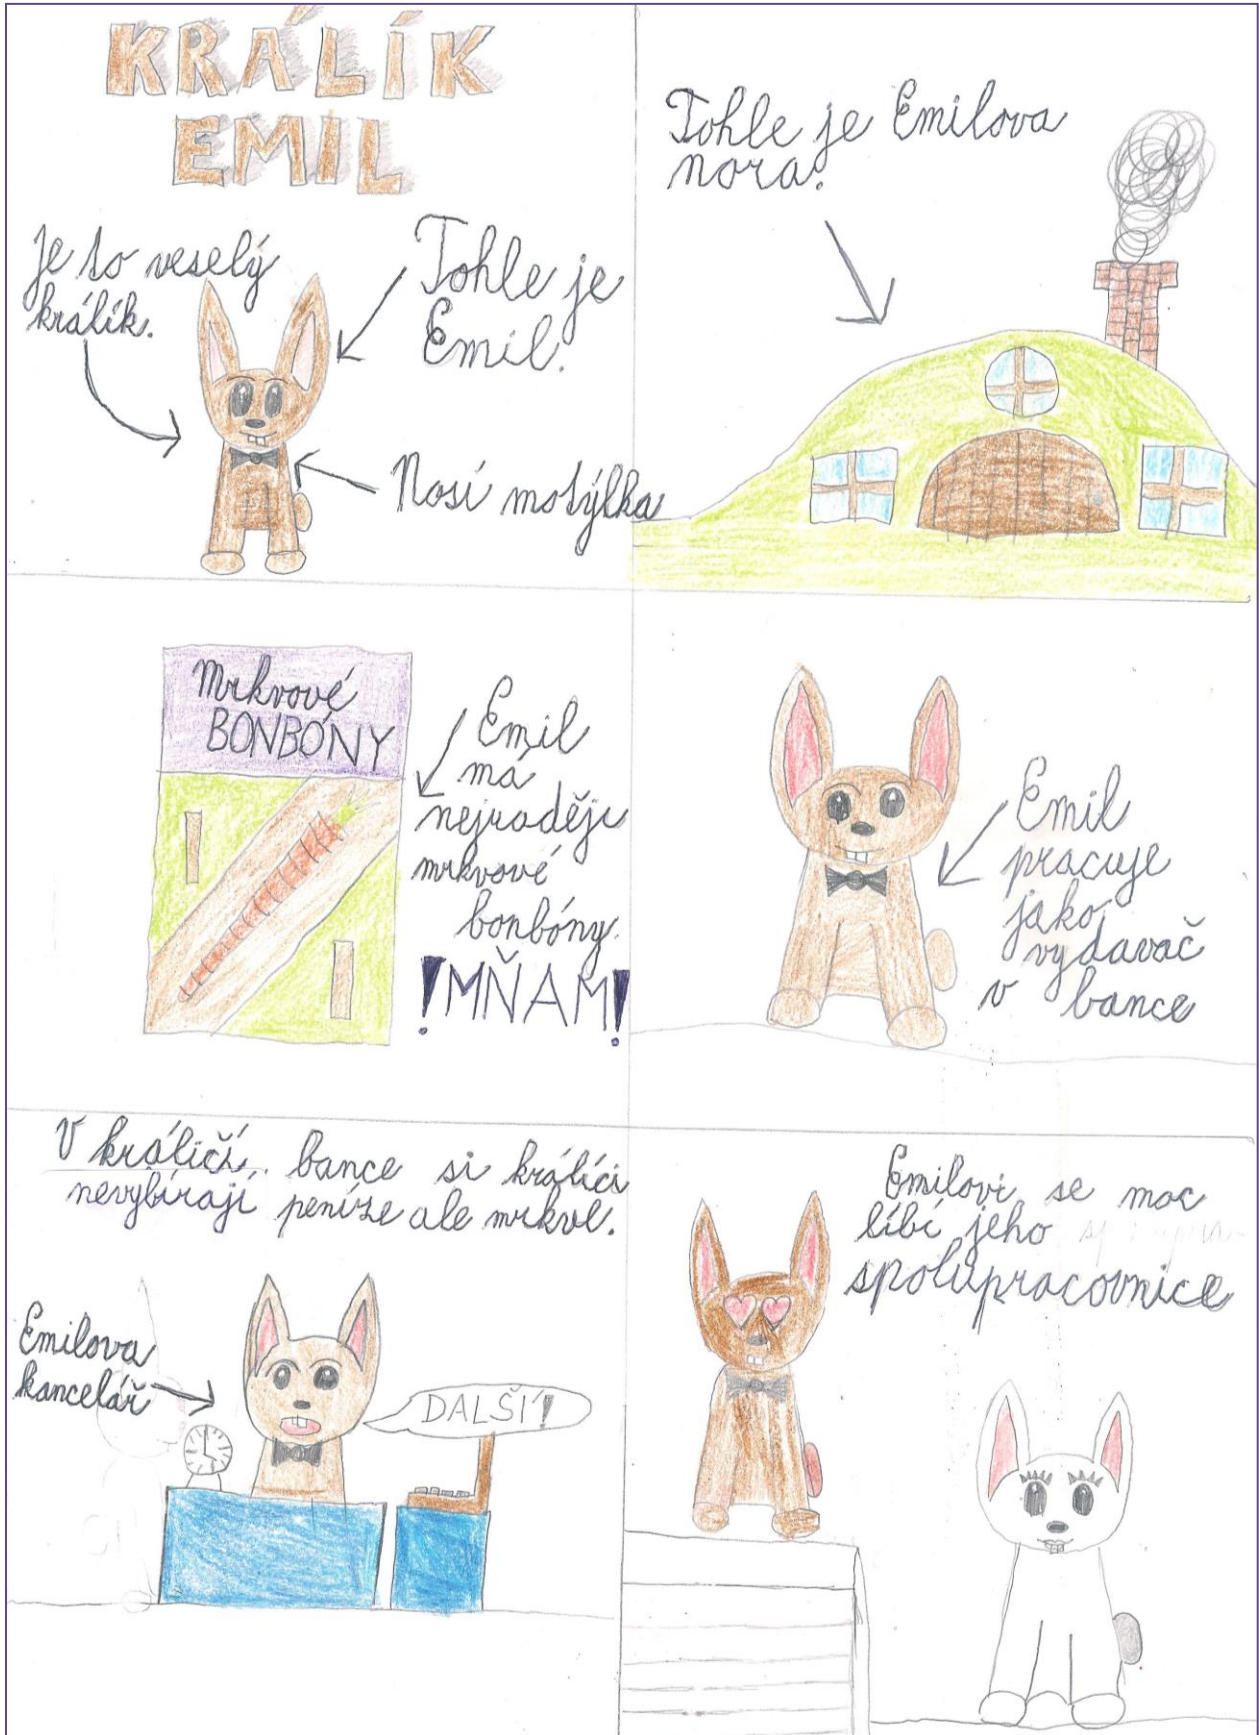 KRÁLÍK
EMIL
Je to veselý
králík.
Tohle je
Emil.
Nosí motýlka
Tohle je Emilova
nora.
Mrkvové
BONBÓNY
Emil
má
nejraději
mrkvové
bonbóny.
!MŇAM!
Emil
pracuje
jako
vydavač
v bance
V králičí bance si králíci
nevybírají peníze ale mrkve.
Emilova
kancelář
DALŠÍ!
Emilovi se moc
líbí jeho
spolupracovnice